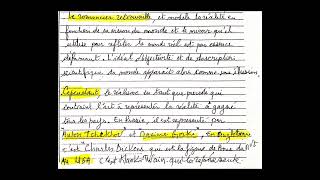 Le romancier retravaille, et modèle la réalité en
fonction de sa vision du monde et le miroir qu'il
utilise pour refléter le monde réel est par essence
déformant. L'idéal d'objectivité et de description
scientifique du monde apparait alors comme une illusion.
Cependant, le réalisme en tant que période qui
contraint l'art à représenter la réalité a gagné
tous les pays. En Russie, il est représenté par
Anton Tchekhov et Maxime Gorki, En Angleterre
c'est Charles Dickens qui est la figure de Proue du
Au USA c'est Mark Twain qui le représente